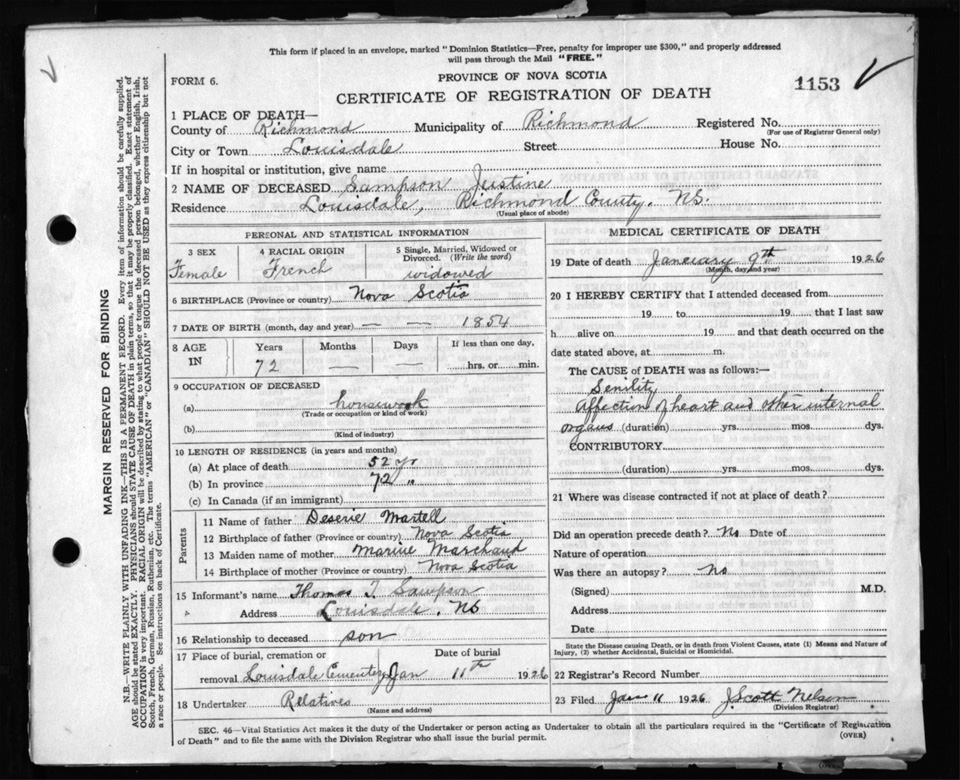 This form if placed in an envelope, marked "Dominion Statistics—Free, penalty for improper use $300," and properly addressed
will pass through the Mail "FREE."
FORM 6.
PROVINCE OF NOVA SCOTIA
1153
CERTIFICATE OF REGISTRATION OF DEATH
1 PLACE OF DEATH—
County of Richmond Municipality of Richmond Registered No.
(For use of Registrar General only)
City or Town Louisdale Street House No.
If in hospital or institution, give name
2 NAME OF DECEASED Sampson Justine
Residence Louisdale, Richmond County. NS.
(Usual place of abode)
PERSONAL AND STATISTICAL INFORMATION
3 SEX 4 RACIAL ORIGIN 5 Single, Married, Widowed or
Divorced. (Write the word)
Female French widowed
6 BIRTHPLACE (Province or country) Nova Scotia
7 DATE OF BIRTH (month, day and year) — — 1854
8 AGE IN Years Months Days If less than one day,
72 — — hrs. or min.
9 OCCUPATION OF DECEASED
(a) housework
(Trade or occupation or kind of work)
(b)
(Kind of industry)
10 LENGTH OF RESIDENCE (in years and months)
(a) At place of death 52 yr
(b) In province 72 "
(c) In Canada (if an immigrant)
Parents
11 Name of father Deserie Martell
12 Birthplace of father (Province or country) Nova Scotia
13 Maiden name of mother Marine Marchaud
14 Birthplace of mother (Province or country) Nova Scotia
15 Informant's name Thomas T. Sampson
Address Louisdale. NS
16 Relationship to deceased son
17 Place of burial, cremation or Date of burial
removal Louisdale Cementery Jan 11th 1926
18 Undertaker Relatives
(Name and address)
MEDICAL CERTIFICATE OF DEATH
19 Date of death January 9th 1926
(Month, day and year)
20 I HEREBY CERTIFY that I attended deceased from
19 to 19 that I last saw
h alive on 19 and that death occurred on
date stated above, at m.
The CAUSE of DEATH was as follows:—
Senility
Affection of heart and other internal
organs (duration) yrs. mos. dys.
CONTRIBUTORY
(duration) yrs. mos. dys.
21 Where was disease contracted if not at place of death?
Did an operation precede death? No Date of
Nature of operation
Was there an autopsy? no
(Signed) M.D.
Address
Date
State the Disease causing Death, or in death from Violent Causes, state (1) Means and Nature of
Injury, (2) whether Accidental, Suicidal or Homicidal.
22 Registrar's Record Number
23 Filed Jan 11 1926 J. Scott Nelson
(Division Registrar)
SEC. 46—Vital Statistics Act makes it the duty of the Undertaker or person acting as Undertaker to obtain all the particulars required in the "Certificate of Registration
of Death" and to file the same with the Division Registrar who shall issue the burial permit.
(OVER)
MARGIN RESERVED FOR BINDING
N.B.—WRITE PLAINLY WITH UNFADING INK—THIS IS A PERMANENT RECORD. Every item of information should be carefully supplied.
AGE should be stated EXACTLY. PHYSICIANS should STATE CAUSE OF DEATH in plain terms, so that it may be properly classified. Exact statement of
OCCUPATION is very important. RACIAL ORIGIN will be described by stating to what people or tongue the deceased person belonged, whether English, Irish,
Scotch, French, German, Russian, Ruthenian, etc. The terms "AMERICAN" or "CANADIAN" SHOULD NOT BE USED as they express citizenship but not
a race or people. See instructions on back of Certificate.